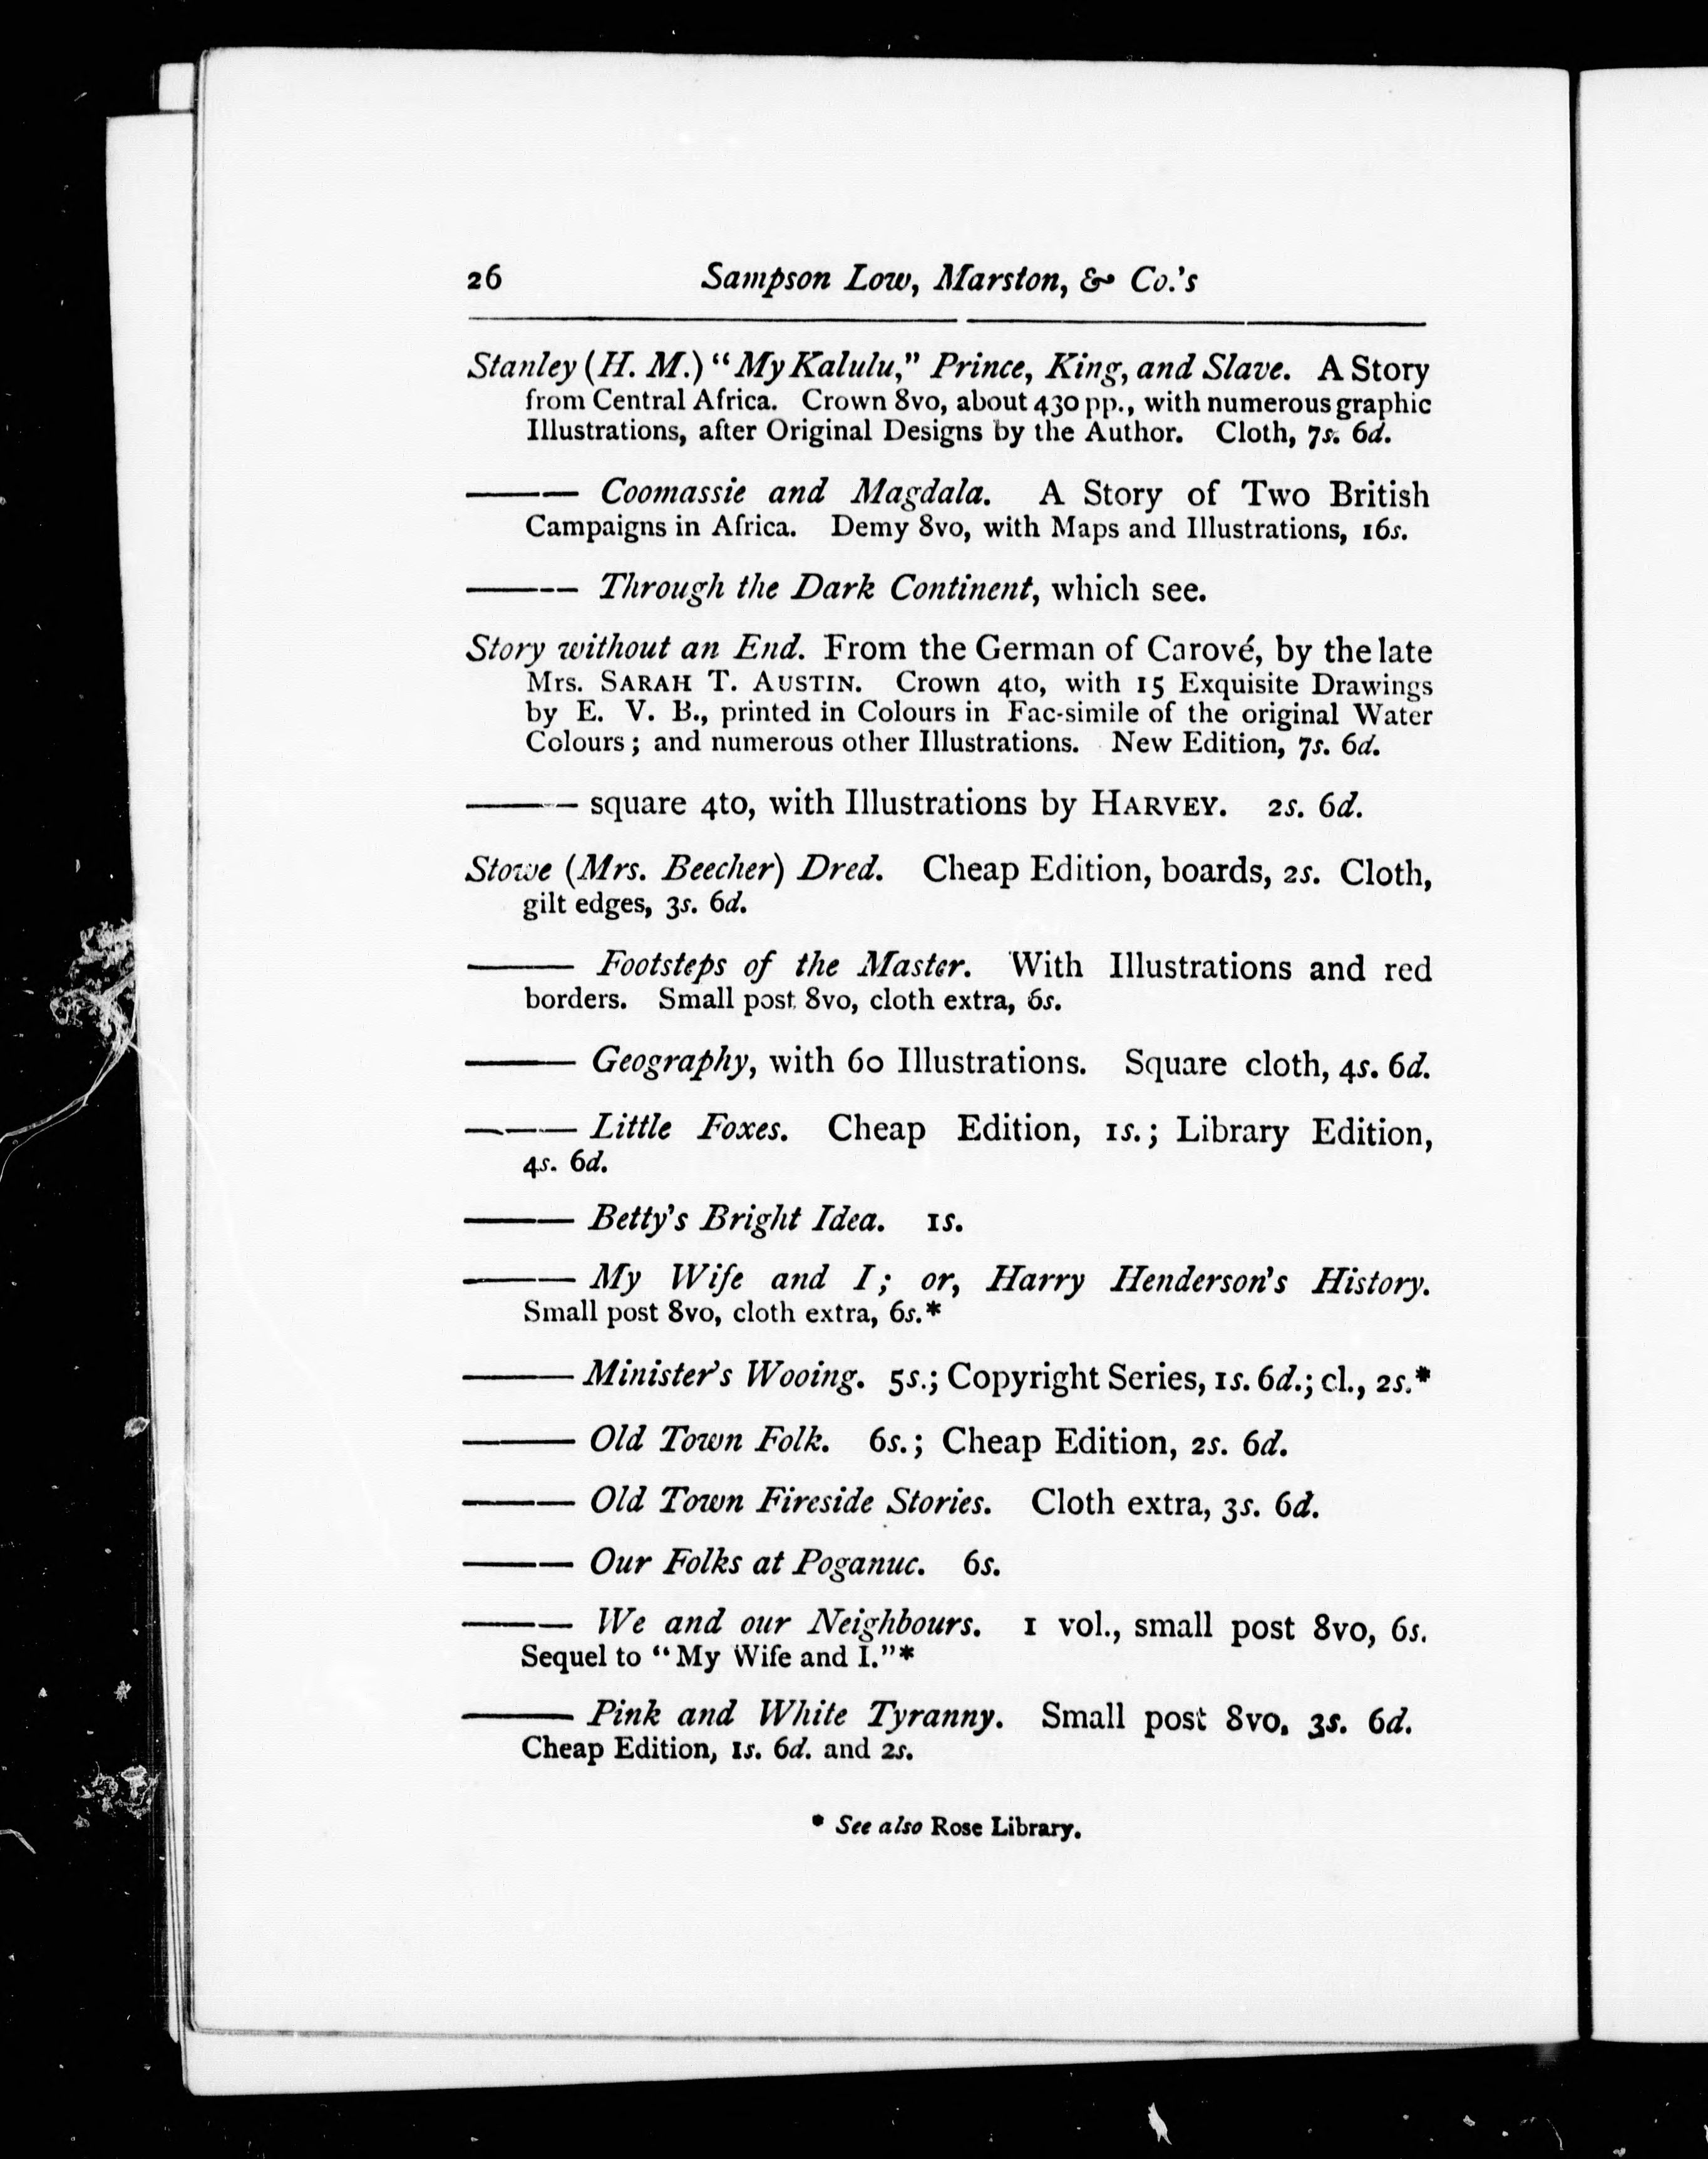 26 Sampson Low, Marston, & Co.'s
Stanley (H. M.) “My Kalulu,” Prince, King, and Slave. A Story
from Central Africa. Crown 8vo, about 430 pp., with numerous graphic
Illustrations, after Original Designs by the Author. Cloth, 7s. 6d.
——— Coomassie and Magdala. A Story of Two British
Campaigns in Africa. Demy 8vo, with Maps and Illustrations, 16s.
——— Through the Dark Continent, which see.
Story without an End. From the German of Carové, by the late
Mrs. SARAH T. AUSTIN. Crown 4to, with 15 Exquisite Drawings
by E. V. B., printed in Colours in Fac-simile of the original Water
Colours; and numerous other Illustrations. New Edition, 7s. 6d.
——— square 4to, with Illustrations by HARVEY. 2s. 6d.
Stowe (Mrs. Beecher) Dred. Cheap Edition, boards, 2s. Cloth,
gilt edges, 3s. 6d.
——— Footsteps of the Master. With Illustrations and red
borders. Small post 8vo, cloth extra, 6s.
——— Geography, with 60 Illustrations. Square cloth, 4s. 6d.
——— Little Foxes. Cheap Edition, 1s.; Library Edition,
4s. 6d.
——— Betty's Bright Idea. 1s.
——— My Wife and I; or, Harry Henderson's History.
Small post 8vo, cloth extra, 6s.*
——— Minister's Wooing. 5s.; Copyright Series, 1s. 6d.; cl., 2s.*
——— Old Town Folk. 6s.; Cheap Edition, 2s. 6d.
——— Old Town Fireside Stories. Cloth extra, 3s. 6d.
——— Our Folks at Poganuc. 6s.
——— We and our Neighbours. 1 vol., small post 8vo, 6s.
Sequel to “My Wife and I.”*
——— Pink and White Tyranny. Small post 8vo, 3s. 6d.
Cheap Edition, 1s. 6d. and 2s.
* See also Rose Library.